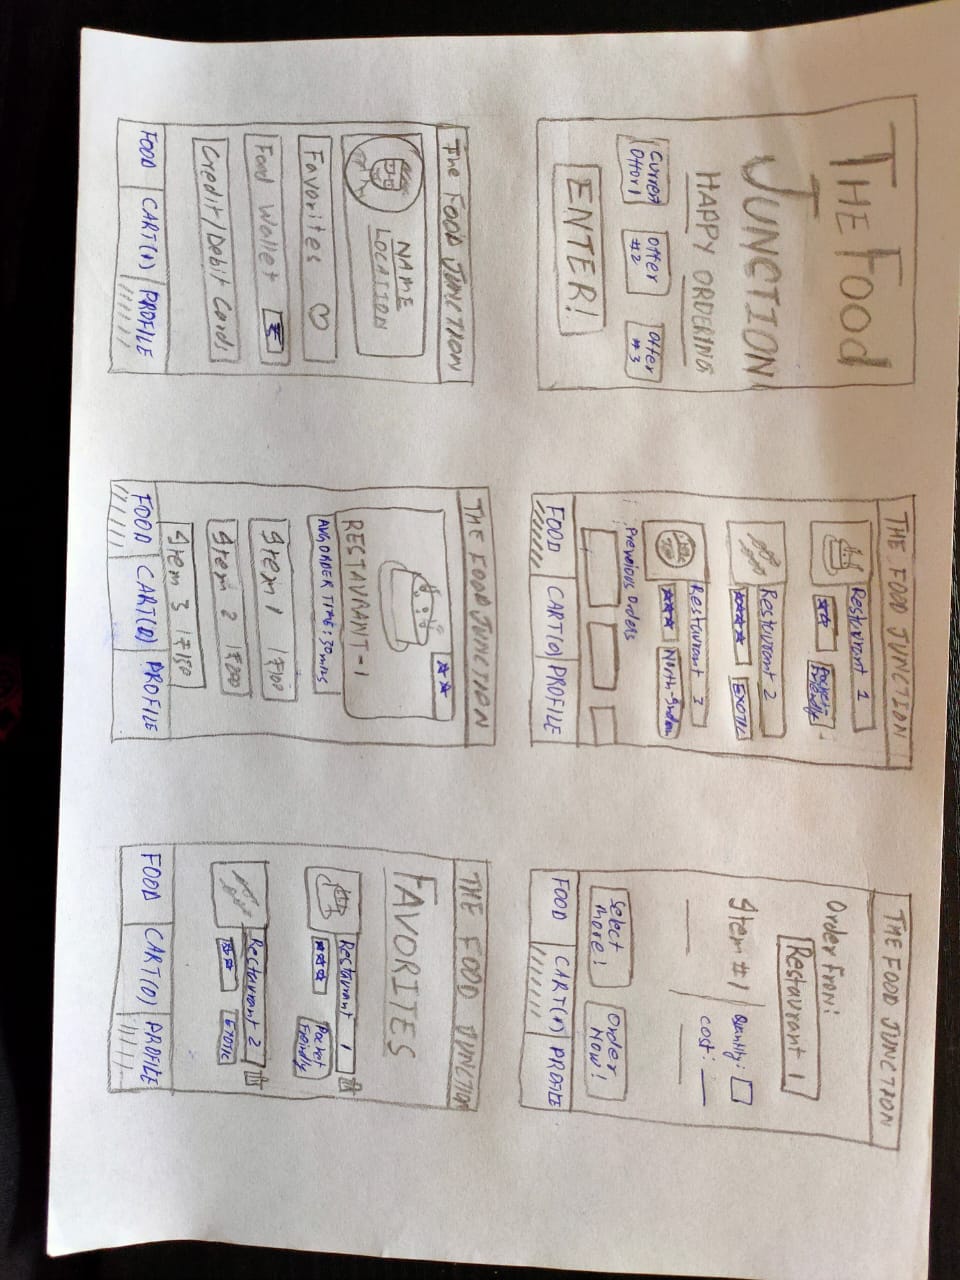 THE FOOD
JUNCTION
HAPPY ORDERING
Current
Offer 1
Offer
#2
Offer
#3
ENTER!
THE FOOD JUNCTION
Restaurant 1
Pocket-
Friendly
Restaurant 2
EXOTIC
Restaurant 3
North-Indian
Previous Orders
FOOD CART(0) PROFILE
THE FOOD JUNCTION
Order From:
Restaurant 1
Item #1
Quantity:
Cost:
Select
More!
Order
Now!
FOOD CART(1) PROFILE
The FOOD JUNCTION
NAME
LOCATION
Favorites
Food Wallet
Credit/Debit Card
FOOD CART(1) PROFILE
THE FOOD JUNCTION
RESTAURANT-1
AVG ORDER TIME: 30 mins
Item 1 ₹100
Item 2 ₹200
Item 3 ₹150
FOOD CART(0) PROFILE
THE FOOD JUNCTION
FAVORITES
Restaurant 1
Pocket
Friendly
Restaurant 2
EXOTIC
FOOD CART(0) PROFILE